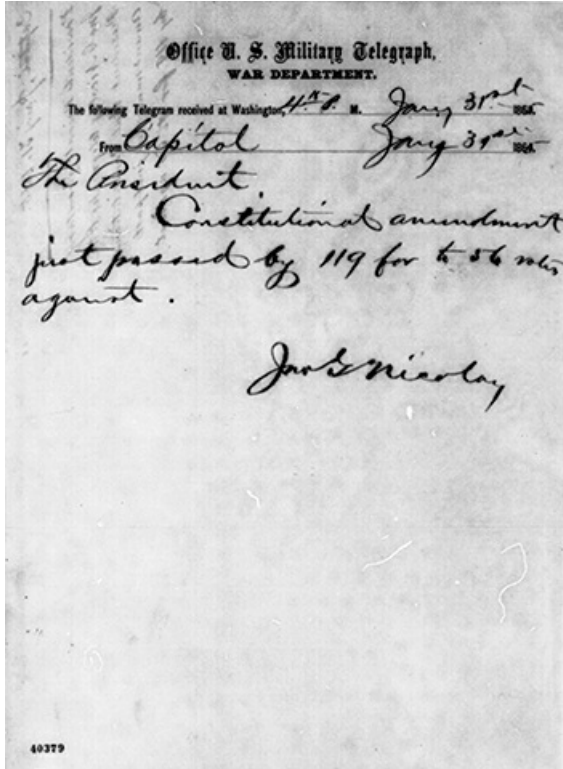 Office U. S. Military Telegraph,
WAR DEPARTMENT.
The following Telegram received at Washington, 4 P. M. Jany 31st 1865.
From Capitol Jany 31st 1865.
The President.
Constitutional amendment
just passed by 119 for to 56 votes
against.
Jno G Nicolay
40379